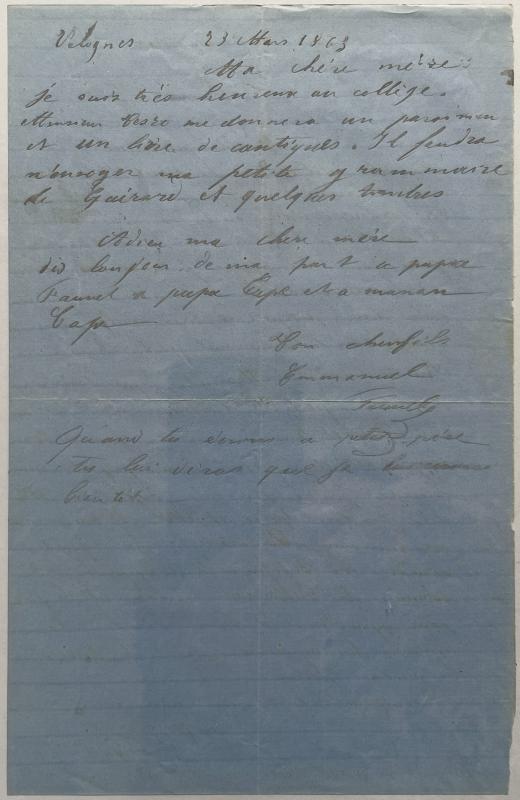 Valognes 23 Mars 1863
Ma chère mère
je suis très heureux au collège.
Monsieur me donnera un paroissien
et un livre de cantiques. Il faudra
m'envoyer ma petite grammaire
de Guérard et quelques timbres
Adieu ma chère mère
dis bonjour de ma part a papa
a papa et a maman
Ton cher fils
Emmanuel
Quand tu écriras a petit père
tu lui diras que je lui
bientôt